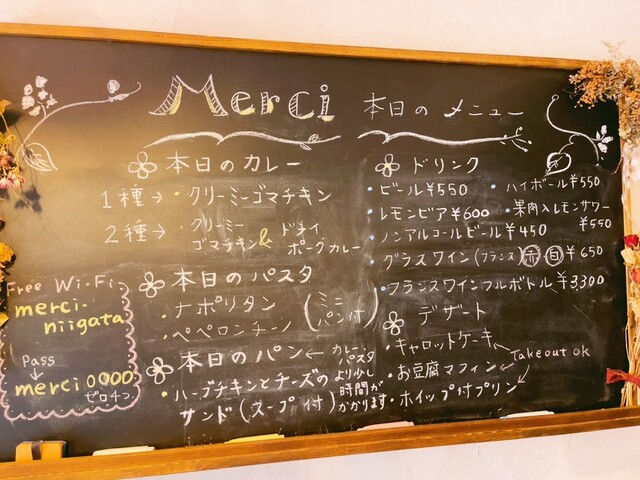 Merci 本日のメニュー
本日のカレー
1種→・クリーミーゴマチキン
2種→・クリーミーゴマチキン & ドライポークカレー
本日のパスタ
・ナポリタン
・ペペロンチーノ
(ミニパン付)
本日のパン ← カレー、パスタより少し時間がかかります
・ハーブチキンとチーズの
サンド(スープ付)
Free Wi-Fi
merci-
niigata
Pass
merci0000
ゼロ4つ
ドリンク
・ビール¥550 ・ハイボール¥550
・レモンビア¥600 ・果肉入レモンサワー ¥550
・ノンアルコールビール¥450
・グラスワイン(フランス)赤 白 ¥650
・フランスワインフルボトル ¥3,300
デザート
・キャロットケーキ
・お豆腐マフィン
・ホイップ付プリン
Takeout ok